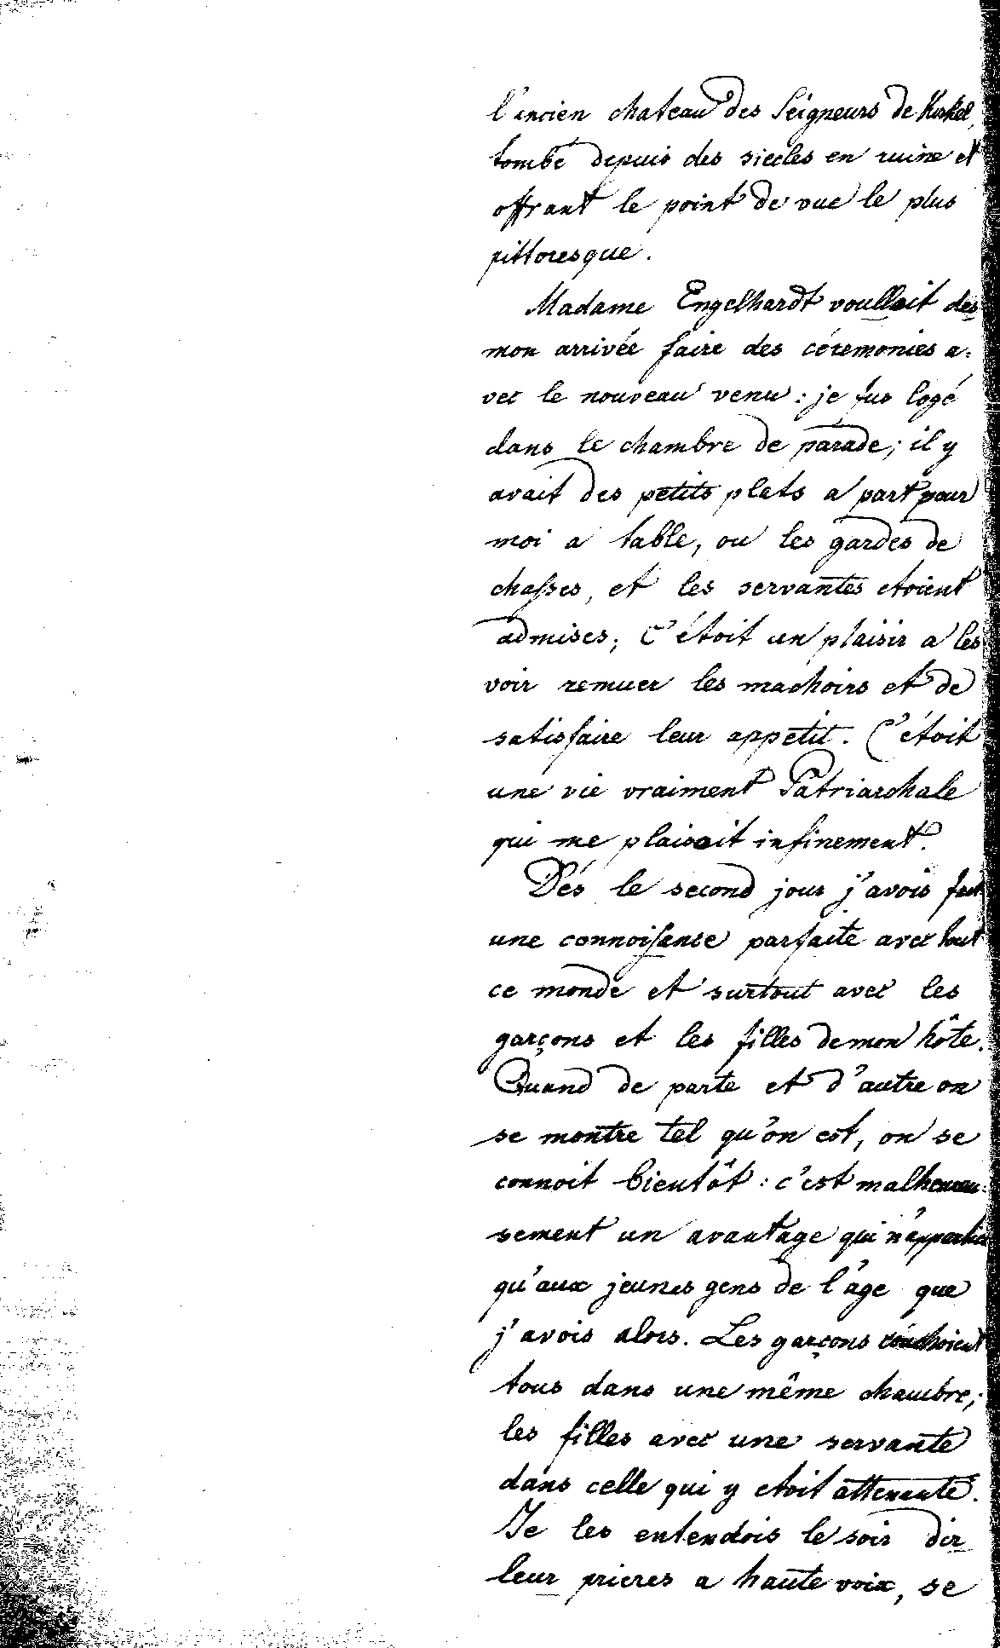 l'ancien chateau des Seigneurs de Kirkel,
tombé depuis des siecles en ruine et
offrant le point de vue le plus
pittoresque.
Madame Engelhardt voulloit des
mon arrivée faire des céremonies a-
vec le nouveau venu: je fus logé
dans le chambre de parade; il y
avait des petits plats a part pour
moi a table, ou les gardes de
chasses, et les servantes etoient
admises; C'étoit un plaisir a les
voir remuer les machoirs et de
satisfaire leur appetit. C'étoit
une vie vraiment Patriarchale
qui me plaisoit infinement.
Dés le second jour j'avois fait
une connoissance parfaite avec tout
ce monde et surtout avec les
garçons et les filles de mon hôte.
Quand de parte et d'autre on
se montre tel qu'on est, on se
connoit bientôt: c'est malheureu-
sement un avantage qui n'appartient
qu'aux jeunes gens de l'âge que
j'avois alors. Les garçons couchoient
tous dans une même chambre;
les filles avec une servante
dans celle qui y etoit attenante.
Je les entendois le soir dir
leur prieres a haute voix, se